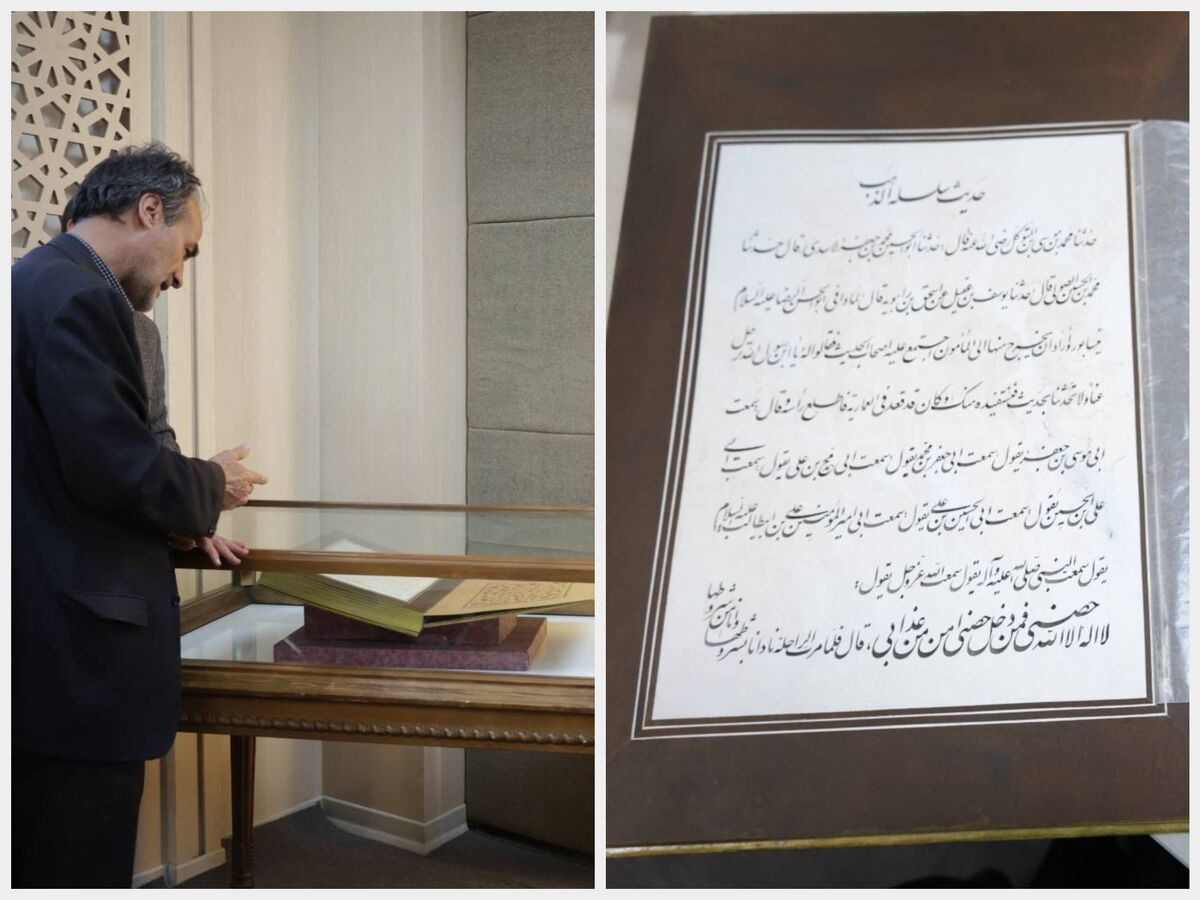 حدیث سلسلة الذهب
حدثنا محمد بن موسی بن المتوکل رضی الله عنه قال: حدثنا ابوالحسین محمد بن جعفر الاسدی، قال حدثنا
محمد بن الحسین الصولی قال حدثنا یوسف بن عقیل عن اسحق بن راهویه قال لما وافی ابوالحسن الرضا علیه السلام
نیسابور و اراد ان یخرج منها الی المأمون اجتمع علیه اصحاب الحدیث فقالوا له یا ابن رسول الله ترحل
عنا ولا تحدثنا بحدیث فنستفیده منک وکان قد قعد فی العماریة فاطلع رأسه و قال سمعت
ابی موسی بن جعفر یقول سمعت ابی جعفر بن محمد یقول سمعت ابی محمد بن علی یقول سمعت ابی
علی بن الحسین یقول سمعت ابی الحسین بن علی یقول سمعت ابی امیرالمؤمنین علی بن ابیطالب علیه السلام
یقول سمعت النبی صلی الله علیه وآله یقول سمعت الله عزوجل یقول:
لا اله الا الله حصنی فمن دخل حصنی امن من عذابی، قال فلما مرت الراحلة نادانا بشروطها وانا من شروطها